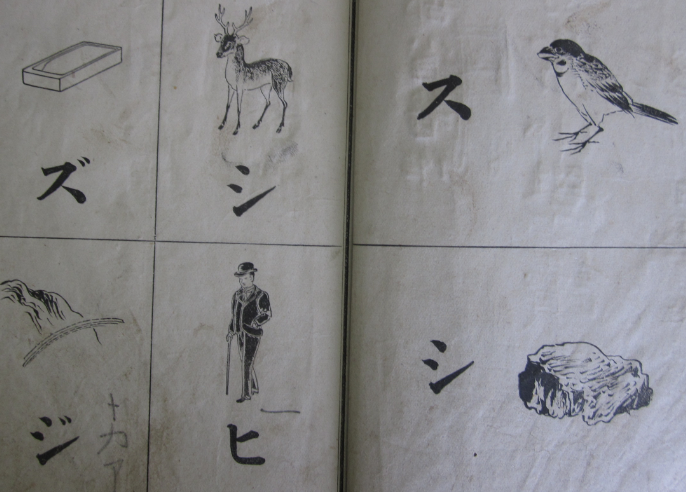 ス
シ
シ
ヒ
ズ
ジ